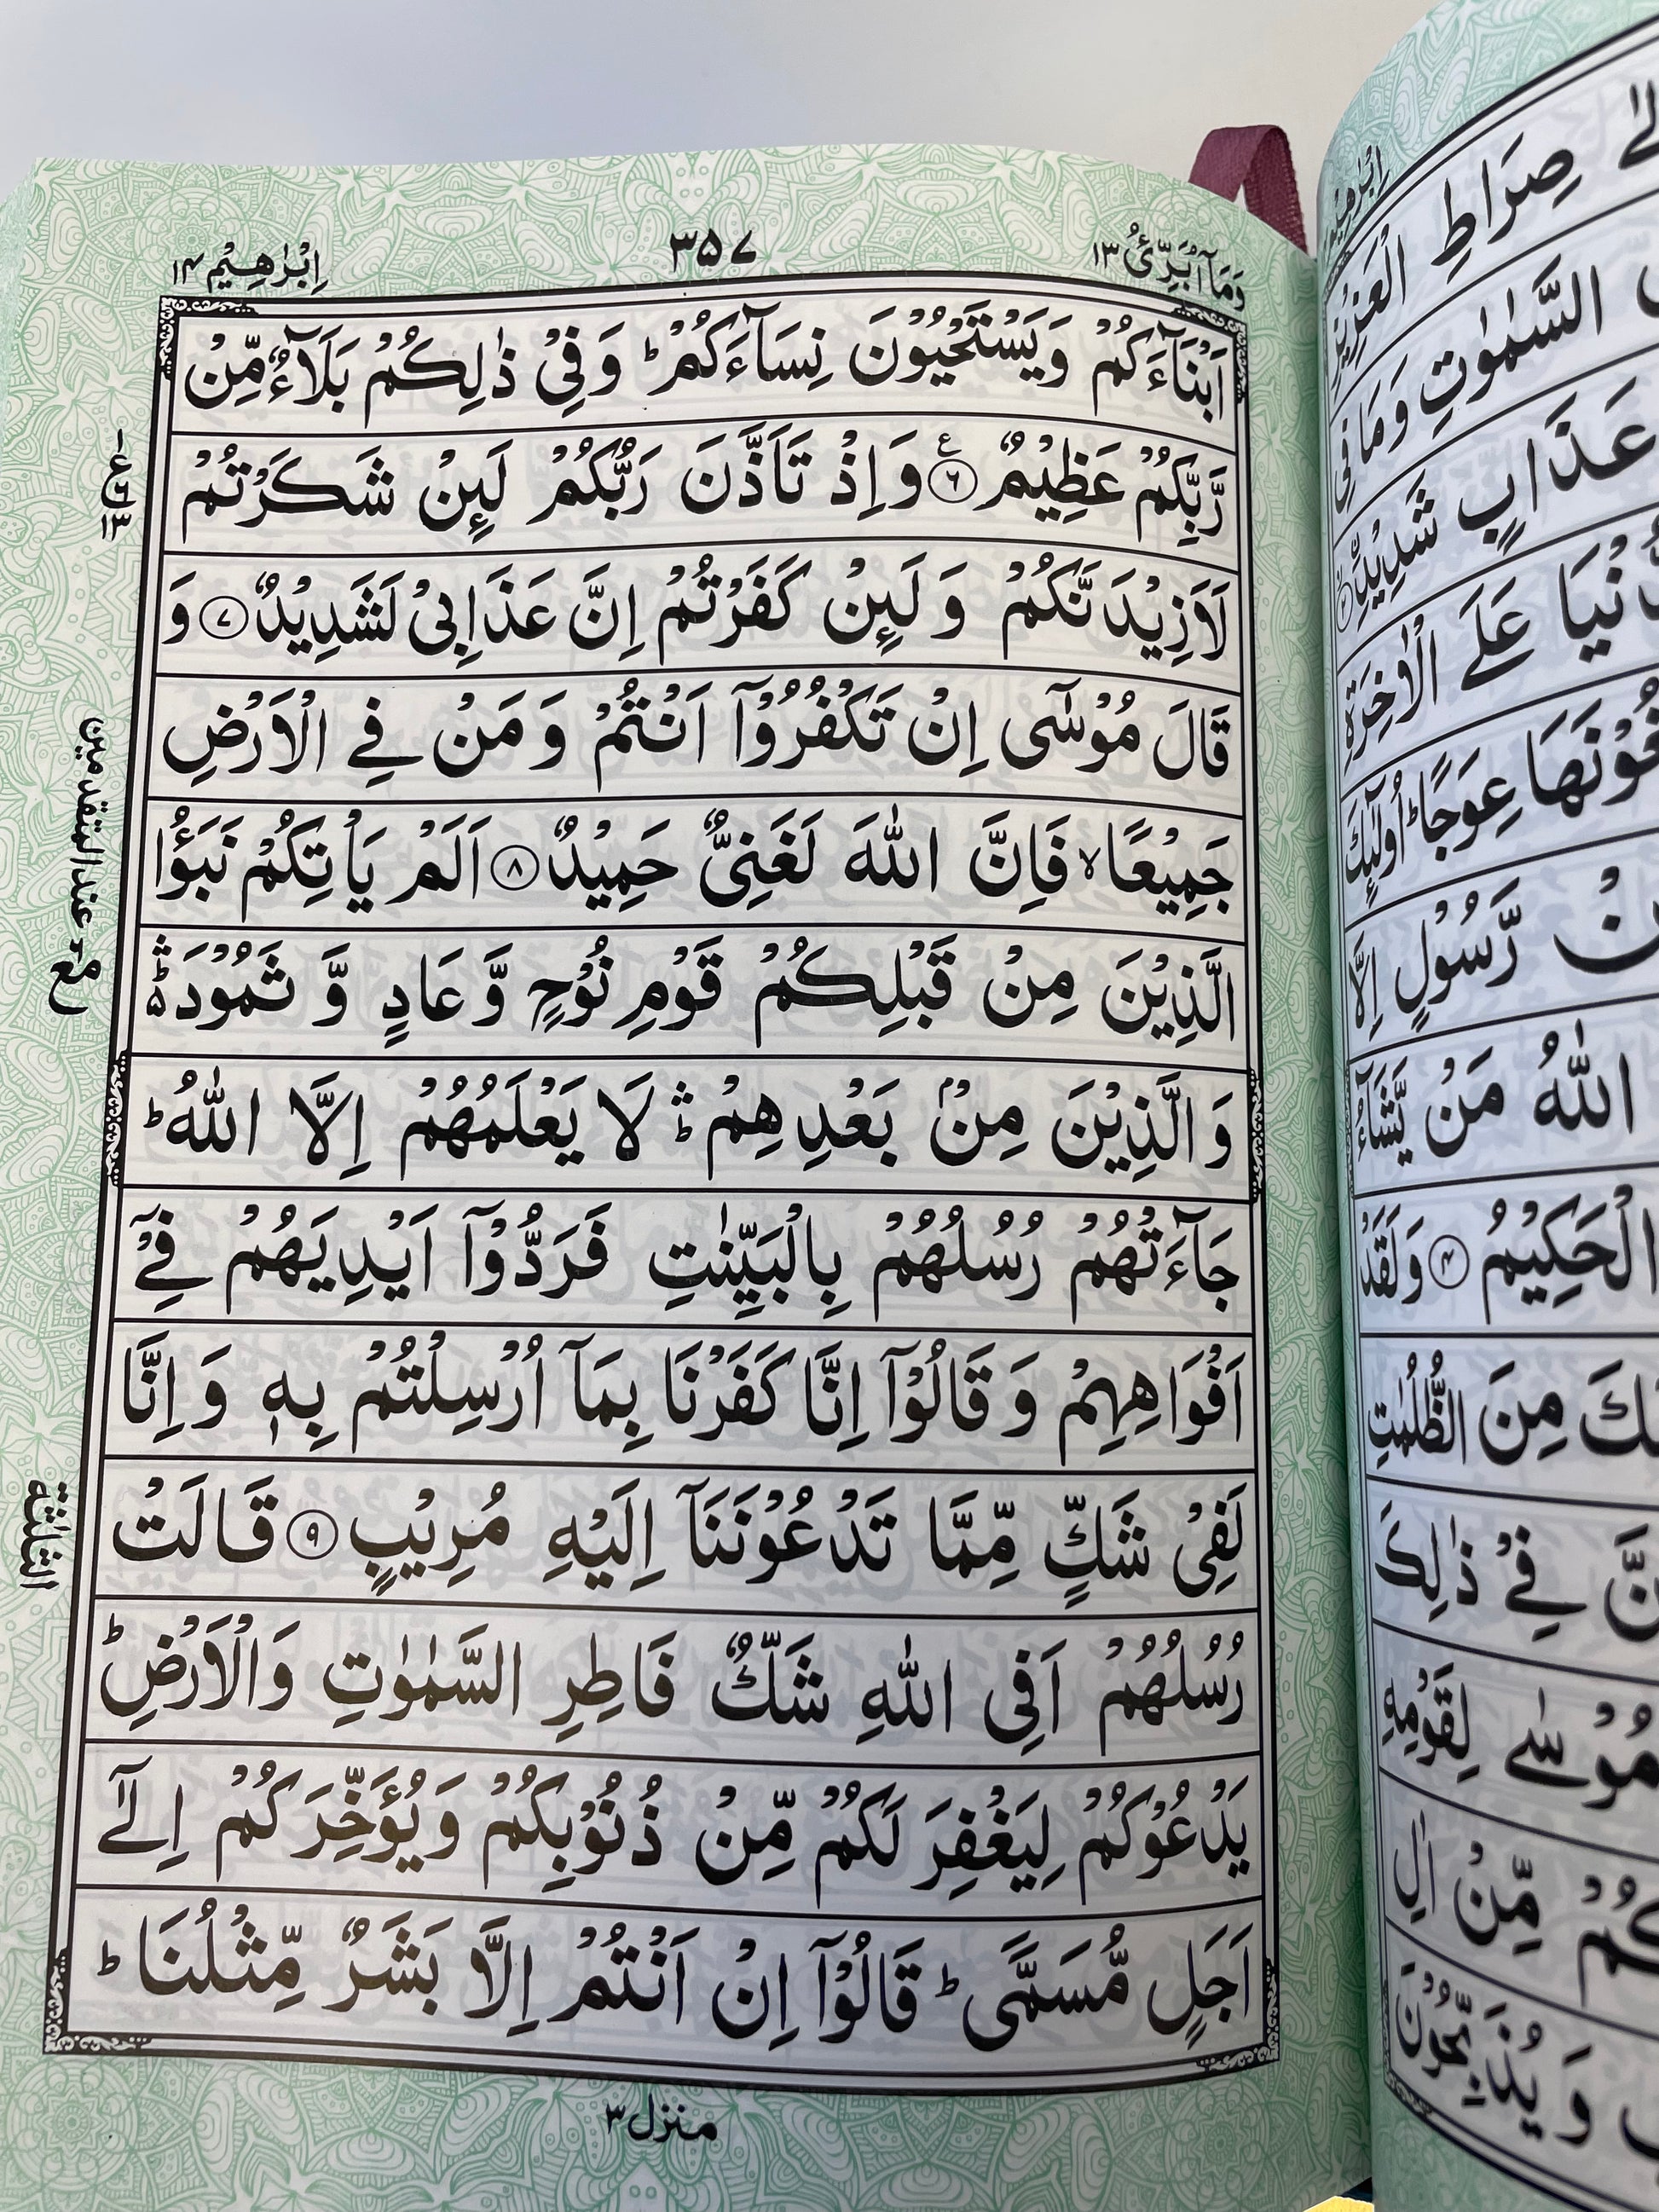 وَمَآ اُبَرِّئُ ١٣
٣٥٧
اِبْرٰهِيْم ١٤
اَبْنَآءَكُمْ وَيَسْتَحْيُوْنَ نِسَآءَكُمْ ؕ وَفِيْ ذٰلِكُمْ بَلَآءٌ مِّنْ
رَّبِّكُمْ عَظِيْمٌ ۶ ع وَاِذْ تَاَذَّنَ رَبُّكُمْ لَىِٕنْ شَكَرْتُمْ
لَاَزِيْدَنَّكُمْ وَ لَىِٕنْ كَفَرْتُمْ اِنَّ عَذَابِيْ لَشَدِيْدٌ ۷ وَ
قَالَ مُوْسٰٓى اِنْ تَكْفُرُوْٓا اَنْتُمْ وَ مَنْ فِي الْاَرْضِ
جَمِيْعًا ۙ فَاِنَّ اللّٰهَ لَغَنِيٌّ حَمِيْدٌ ۸ اَلَمْ يَاْتِكُمْ نَبَؤُا
الَّذِيْنَ مِنْ قَبْلِكُمْ قَوْمِ نُوْحٍ وَّ عَادٍ وَّ ثَمُوْدَ ۛؕ
وَالَّذِيْنَ مِنْۢ بَعْدِهِمْ ۛؕ لَا يَعْلَمُهُمْ اِلَّا اللّٰهُ ؕ
جَآءَتْهُمْ رُسُلُهُمْ بِالْبَيِّنٰتِ فَرَدُّوْٓا اَيْدِيَهُمْ فِيْٓ
اَفْوَاهِهِمْ وَ قَالُوْٓا اِنَّا كَفَرْنَا بِمَآ اُرْسِلْتُمْ بِهٖ وَ اِنَّا
لَفِيْ شَكٍّ مِّمَّا تَدْعُوْنَنَآ اِلَيْهِ مُرِيْبٍ ۹ قَالَتْ
رُسُلُهُمْ اَفِي اللّٰهِ شَكٌّ فَاطِرِ السَّمٰوٰتِ وَالْاَرْضِ ؕ
يَدْعُوْكُمْ لِيَغْفِرَ لَكُمْ مِّنْ ذُنُوْبِكُمْ وَيُؤَخِّرَكُمْ اِلٰٓى
اَجَلٍ مُّسَمًّى ؕ قَالُوْٓا اِنْ اَنْتُمْ اِلَّا بَشَرٌ مِّثْلُنَا ؕ
منزل ٣
عند المتقدمين
الثلثة
اِبْرٰهِيْم
صِرَاطِ الْعَزِيْزِ
السَّمٰوٰتِ وَمَا فِي
عَذَابٍ شَدِيْدِ
عَلَى الْاٰخِرَةِ
عِوَجًا ؕ اُولٰٓىِٕكَ
رَّسُوْلٍ اِلَّا
اللّٰهُ مَنْ يَّشَآءُ
الْحَكِيْمُ ۴ وَلَقَدْ
مِنَ الظُّلُمٰتِ
فِيْ ذٰلِكَ
مُوْسٰى لِقَوْمِهِ
مِّنْ اٰلِ
وَ يُذَبِّحُوْنَ